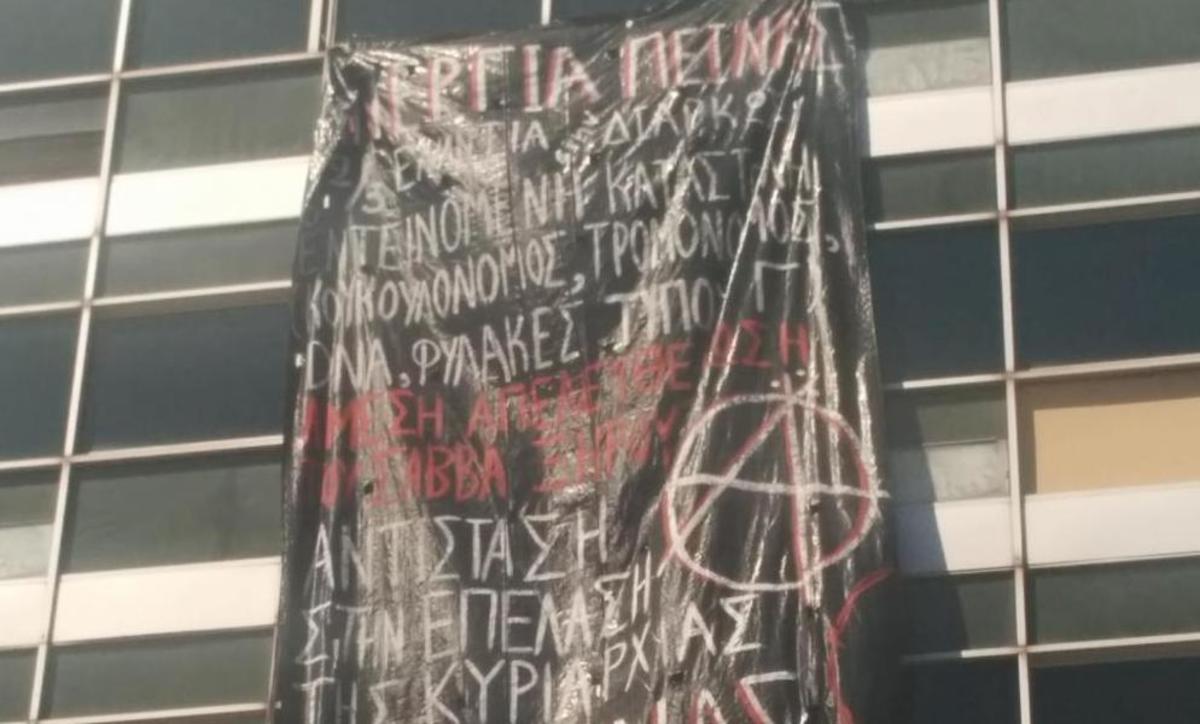 ΑΠΕΡΓΙΑ ΠΕΙΝΑΣ
ΔΙΑΡΚΩΣ
ΕΝΤΕΙΝΟΜΕΝΗ ΚΑΤΑΣΤΟΛΗ
ΚΟΥΚΟΥΛΟΝΟΜΟΣ, ΤΡΟΜΟΝΟΜΟΣ,
DNA, ΦΥΛΑΚΕΣ ΤΥΠΟΥ Γ
ΑΜΕΣΗ ΑΠΕΛΕΥΘΕΡΩΣΗ
ΤΟΥ ΣΑΒΒΑ ΞΗΡΟΥ
ΑΝΤΙΣΤΑΣΗ
ΣΤΗΝ ΕΠΕΛΑΣΗ
ΤΗΣ ΚΥΡΙΑΡΧΙΑΣ